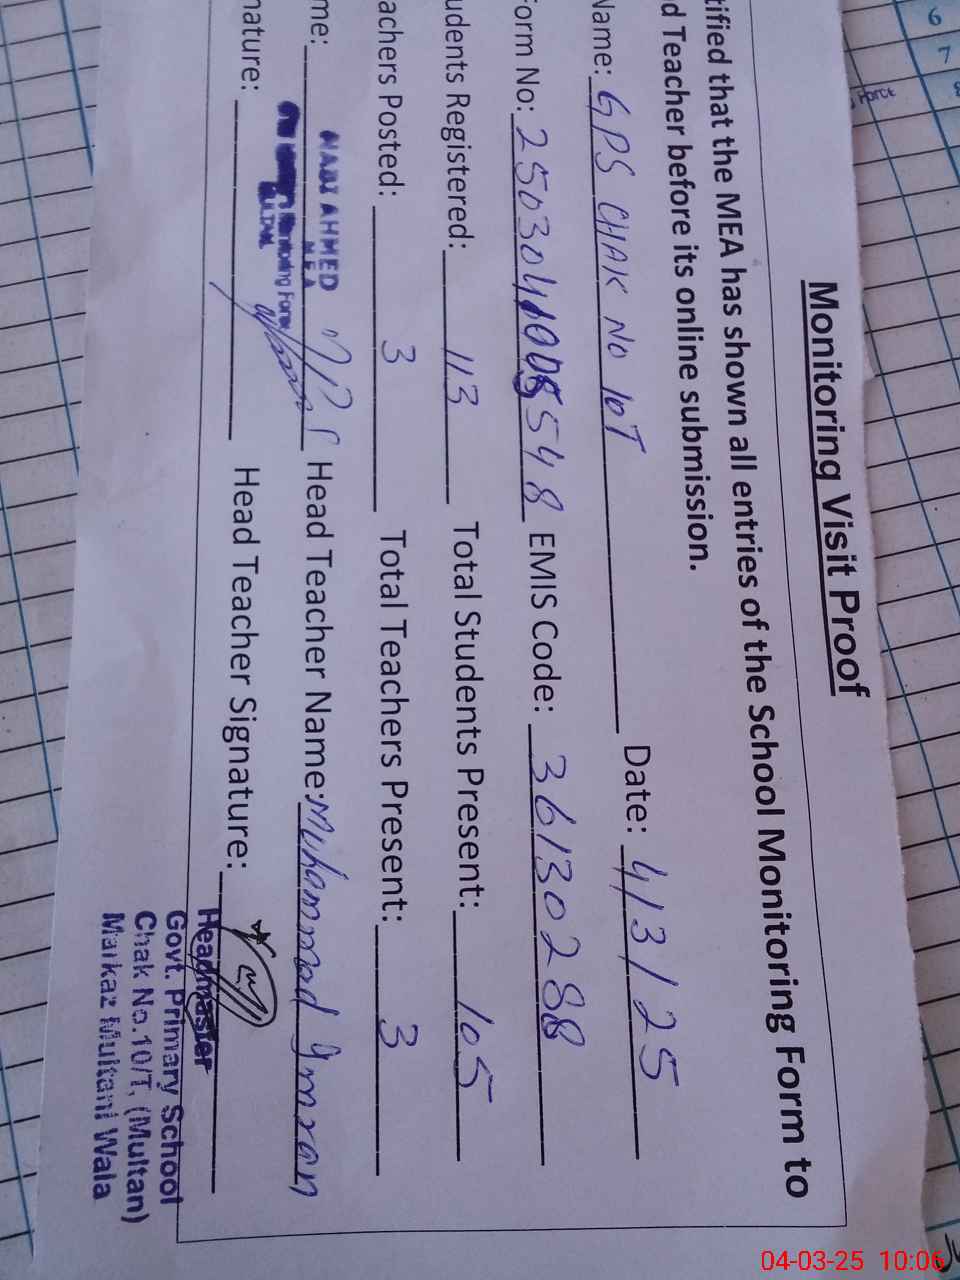 Monitoring Visit Proof
tified that the MEA has shown all entries of the School Monitoring Form to
d Teacher before its online submission.
Name: GPS CHAK No 10T Date: 4/3/25
Form No: EMIS Code: 36130288
udents Registered: 113 Total Students Present: 105
achers Posted: 3 Total Teachers Present: 3
me: NABI AHMED Head Teacher Name: Muhammad Imran
MEA
Monitoring Force
MULTAN
nature: Head Teacher Signature:
Headmaster
Govt. Primary School
Chak No.10/T, (Multan)
Markaz Multani Wala
6
7
8
Force
04-03-25 10:06